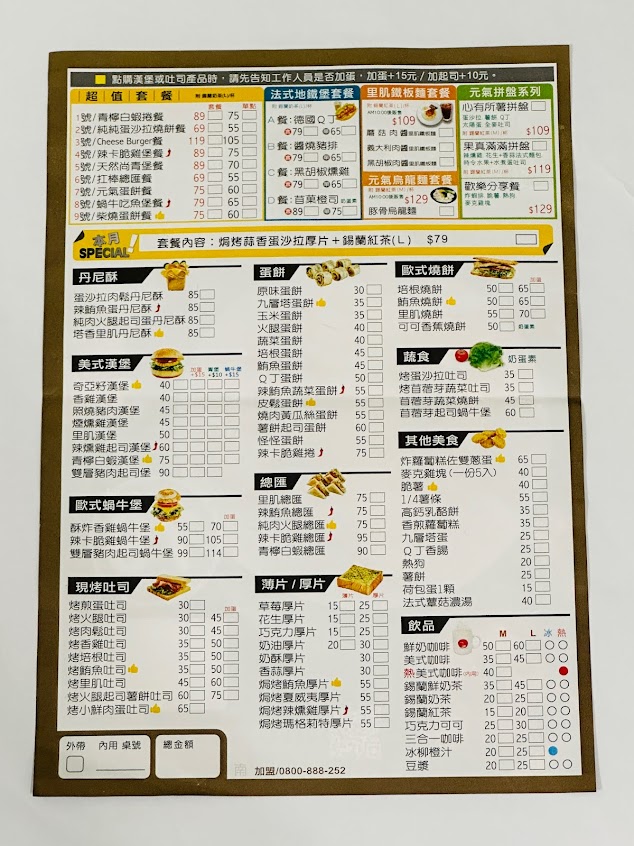 點購漢堡或吐司產品時,請先告知工作人員是否加蛋,加蛋+15元/加起司+10元。
超值套餐 附 錫蘭奶茶(L)/杯
套餐 單點
1號/青檸白蝦捲餐 89 75
2號/純純蛋沙拉燒餅餐 69 55
3號/Cheese Burger餐 119 105
4號/辣卡脆雞堡餐 89 75
5號/天然尚青堡餐 89 70
6號/扛棒總匯餐 69 55
7號/元氣蛋餅餐 75 60
8號/蝸牛吃魚堡餐 79 65
9號/柴燒蛋餅餐 75 60
法式地鐵堡套餐
附 錫蘭奶茶(L)/杯
A餐:德國Q丁
套79 單65
B餐:醬燒豬排
套79 單65
C餐:黑胡椒燻雞
套79 單65
D餐:苜葉橙司 奶蛋素
套79 單65
里肌鐵板麵套餐
附 錫蘭紅茶(L)/杯
AM10:00後販售
$109
蘑菇肉醬 里肌鐵板麵
義大利肉醬 里肌鐵板麵
黑胡椒肉醬 里肌鐵板麵
元氣烏龍麵套餐
附 錫蘭紅茶(M)/杯
AM10:00後販售
$129
豚骨烏龍麵
元氣拼盤系列
心有所薯拼盤
蛋沙拉 薯餅 Q丁
太陽蛋 全麥吐司
附 錫蘭紅茶(M)/杯
$109
果真滿滿拼盤
辣燻雞 花生+香蒜法式麵包
時令水果+水煮蛋吐司
附 錫蘭紅茶(M)/杯
$119
歡樂分享餐
炸蝦排 脆薯 熱狗
麥克雞塊
$129
本月 SPECIAL! 套餐內容:焗烤蒜香蛋沙拉厚片+錫蘭紅茶(L) $79
丹尼酥
蛋沙拉肉鬆丹尼酥 85
辣鮪魚蛋丹尼酥 85
純肉火腿起司蛋丹尼酥 85
塔香里肌丹尼酥 85
美式漢堡
加蛋+$15 青堡+$10 蝸牛堡+$15
奇亞籽漢堡 40
香雞漢堡 40
照燒豬肉漢堡 45
煙燻雞漢堡 45
里肌漢堡 50
辣燻雞起司漢堡 60
青檸白蝦漢堡 75
雙層豬肉起司堡 90
歐式蝸牛堡
加蛋
酥炸香雞蝸牛堡 55 70
辣卡脆雞蝸牛堡 90 105
雙層豬肉起司蝸牛堡 99 114
現烤吐司
加蛋
烤煎蛋吐司 30
烤火腿吐司 30 45
烤肉鬆吐司 30 45
烤香雞吐司 35 50
烤培根吐司 35 50
烤鮪魚吐司 35 50
烤里肌吐司 45 60
烤火腿起司薯餅吐司 60 75
烤小鮮肉蛋吐司 65
外帶
內用 桌號
總金額
蛋餅
原味蛋餅 30
九層塔蛋餅 35
玉米蛋餅 35
火腿蛋餅 40
蔬菜蛋餅 40
培根蛋餅 45
鮪魚蛋餅 45
Q丁蛋餅 50
辣鮪魚蔬菜蛋餅 55
皮鬆蛋餅 60
燒肉黃瓜絲蛋餅 55
薯餅起司蛋餅 60
怪怪蛋餅 55
辣卡脆雞捲 75
總匯
里肌總匯 75
辣鮪魚總匯 75
純肉火腿總匯 75
辣卡脆雞總匯 95
青檸白蝦總匯 90
薄片/厚片
薄片 厚片
草莓厚片 15 25
花生厚片 15 25
巧克力厚片 15 25
奶油厚片 20 30
奶酥厚片 30
香蒜厚片 30
焗烤鮪魚厚片 55
焗烤夏威夷厚片 55
焗烤辣燻雞厚片 55
焗烤瑪格莉特厚片 55
加盟/0800-888-252
歐式燒餅
加蛋
培根燒餅 50 65
鮪魚燒餅 50 65
里肌燒餅 55 70
可可香蕉燒餅 50 奶蛋素
蔬食 奶蛋素
烤蛋沙拉吐司 35
烤苜蓿芽蔬菜吐司 35
苜蓿芽蔬菜燒餅 45
苜蓿芽起司蝸牛堡 60
其他美食
炸蘿蔔糕佐雙蔥蛋 65
麥克雞塊(一份5入) 40
脆薯 40
1/4薯條 55
高鈣乳酪餅 35
香煎蘿蔔糕 35
九層塔蛋 25
Q丁香腸 25
熱狗 20
薯餅 25
荷包蛋1顆 15
法式蕈菇濃湯 40
飲品 M L 冰 熱
鮮奶咖啡 50 60
美式咖啡 35 45
熱美式咖啡(內用) 40
錫蘭鮮奶茶 35 45
錫蘭奶茶 20 25
錫蘭紅茶 15 20
巧克力可可 25 30
三合一咖啡 20 25
冰柳橙汁 20 25
豆漿 20 25